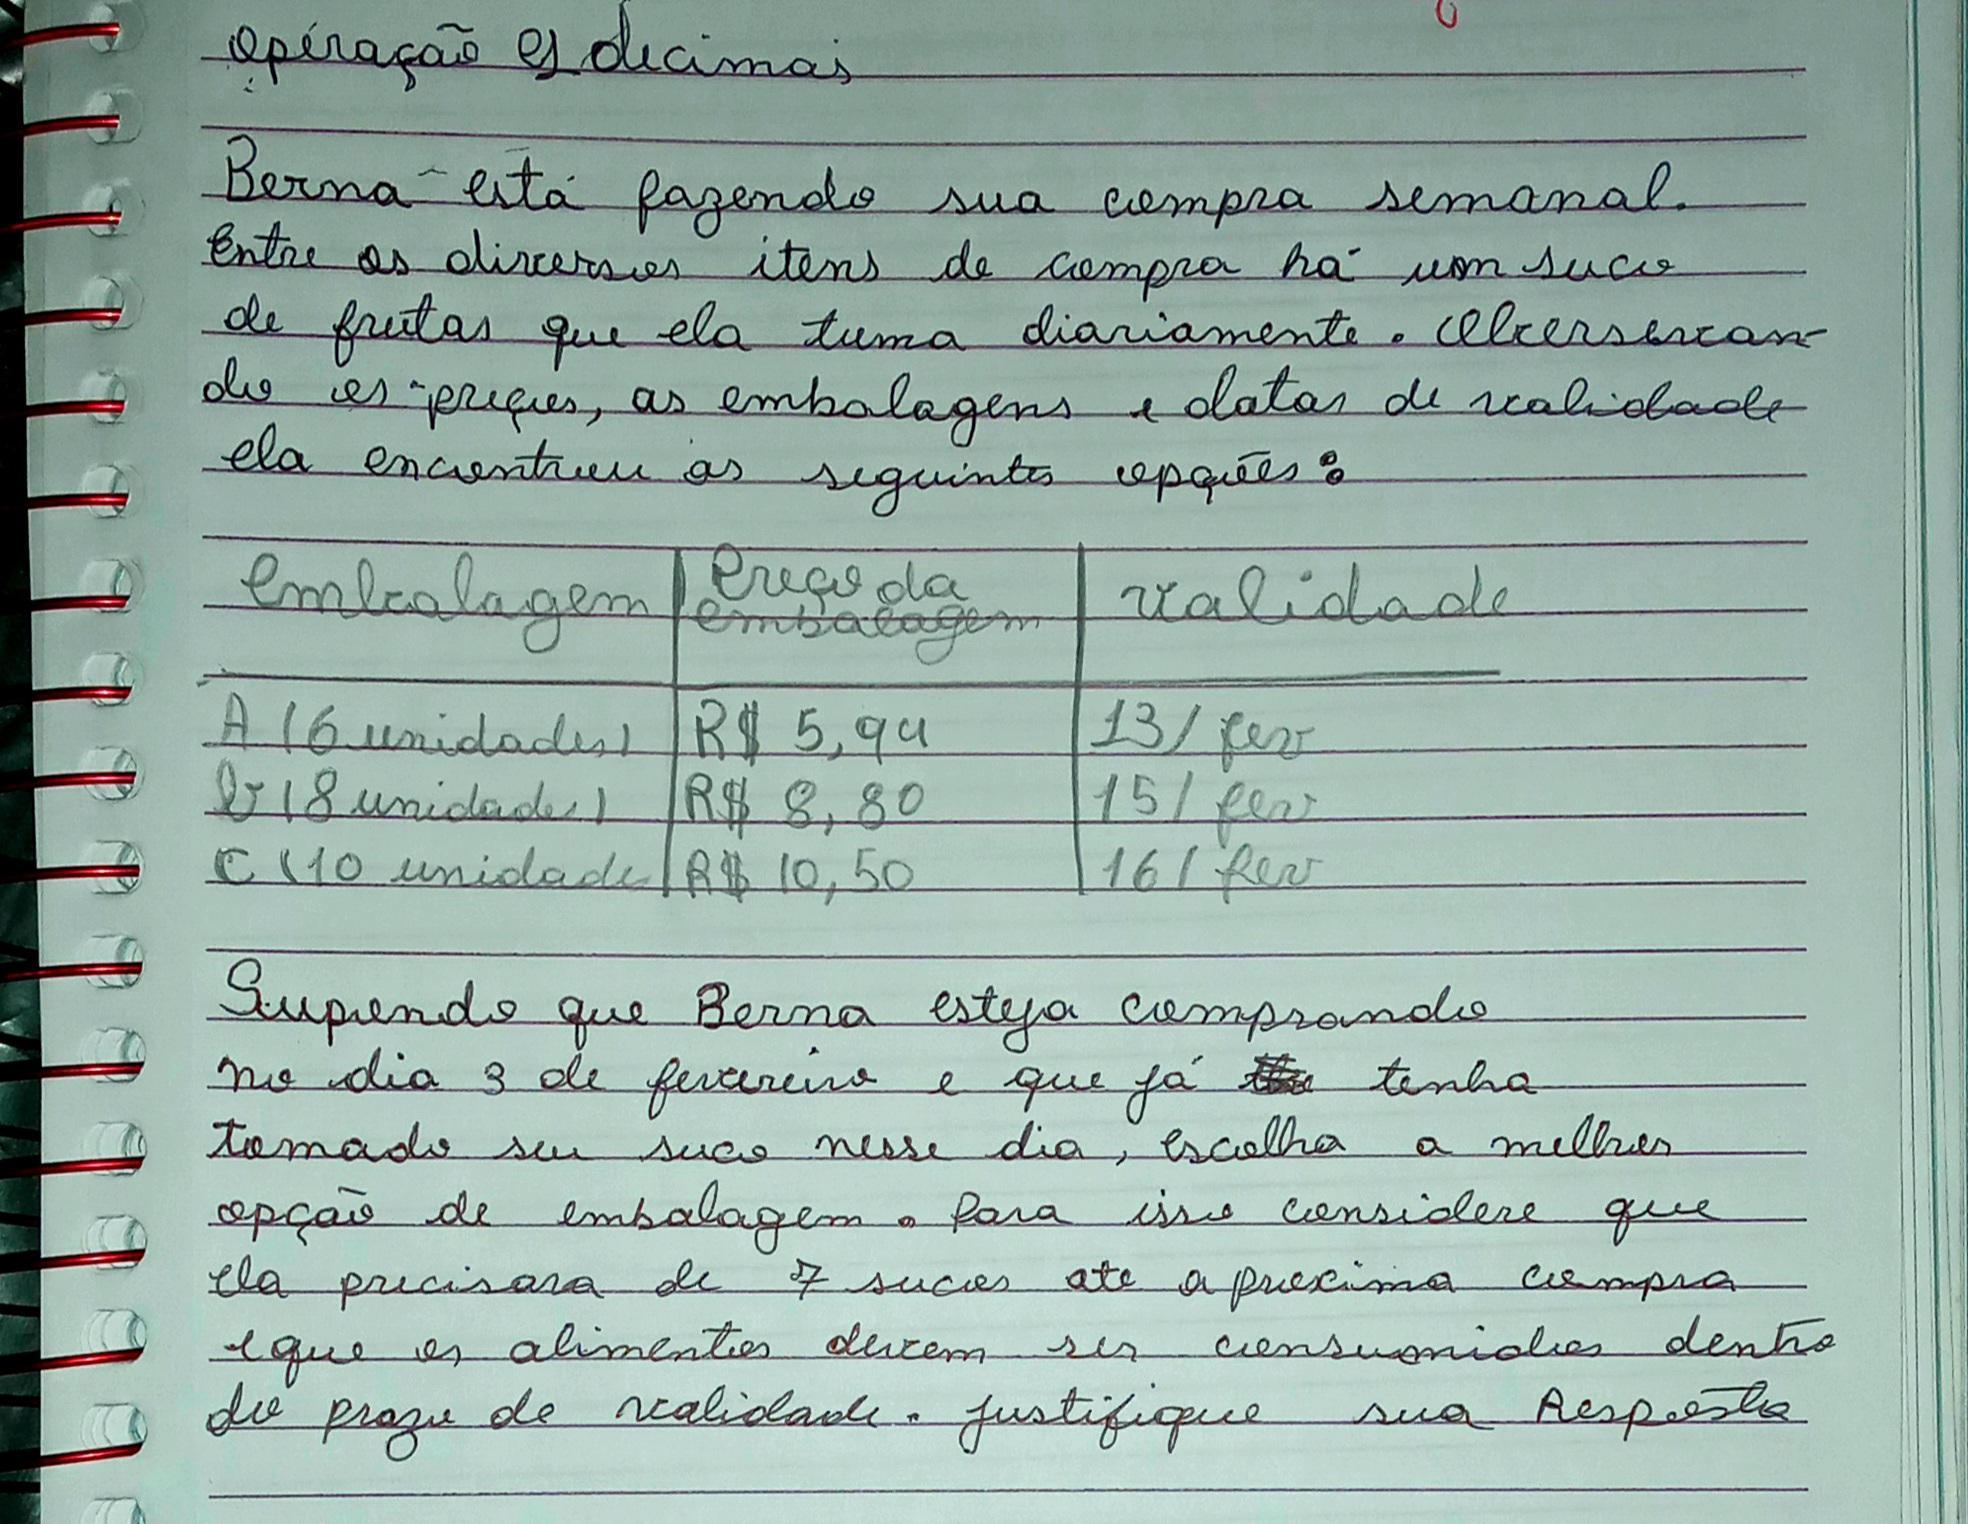 operação c/ decimas
Berna está fazendo sua compra semanal.
Entre os diversos itens de compra há um suco
de frutas que ela toma diariamente. Observan-
do os preços, as embalagens e datas de validade
ela encontrou as seguintes opções:
embalagem Preço da embalagem validade
A (6 unidades) R$ 5,94 13/fev
B (8 unidades) R$ 8,80 15/fev
C (10 unidade R$ 10,50 16/fev
Supondo que Berna esteja comprando
no dia 3 de fevereiro e que já tenha
tomado seu suco nesse dia, escolha a melhor
opção de embalagem. Para isso considere que
ela precisara de 7 sucos ate a proxima compra
e que os alimentos devem ser consumidos dentro
do prazo de validade. Justifique sua Resposta